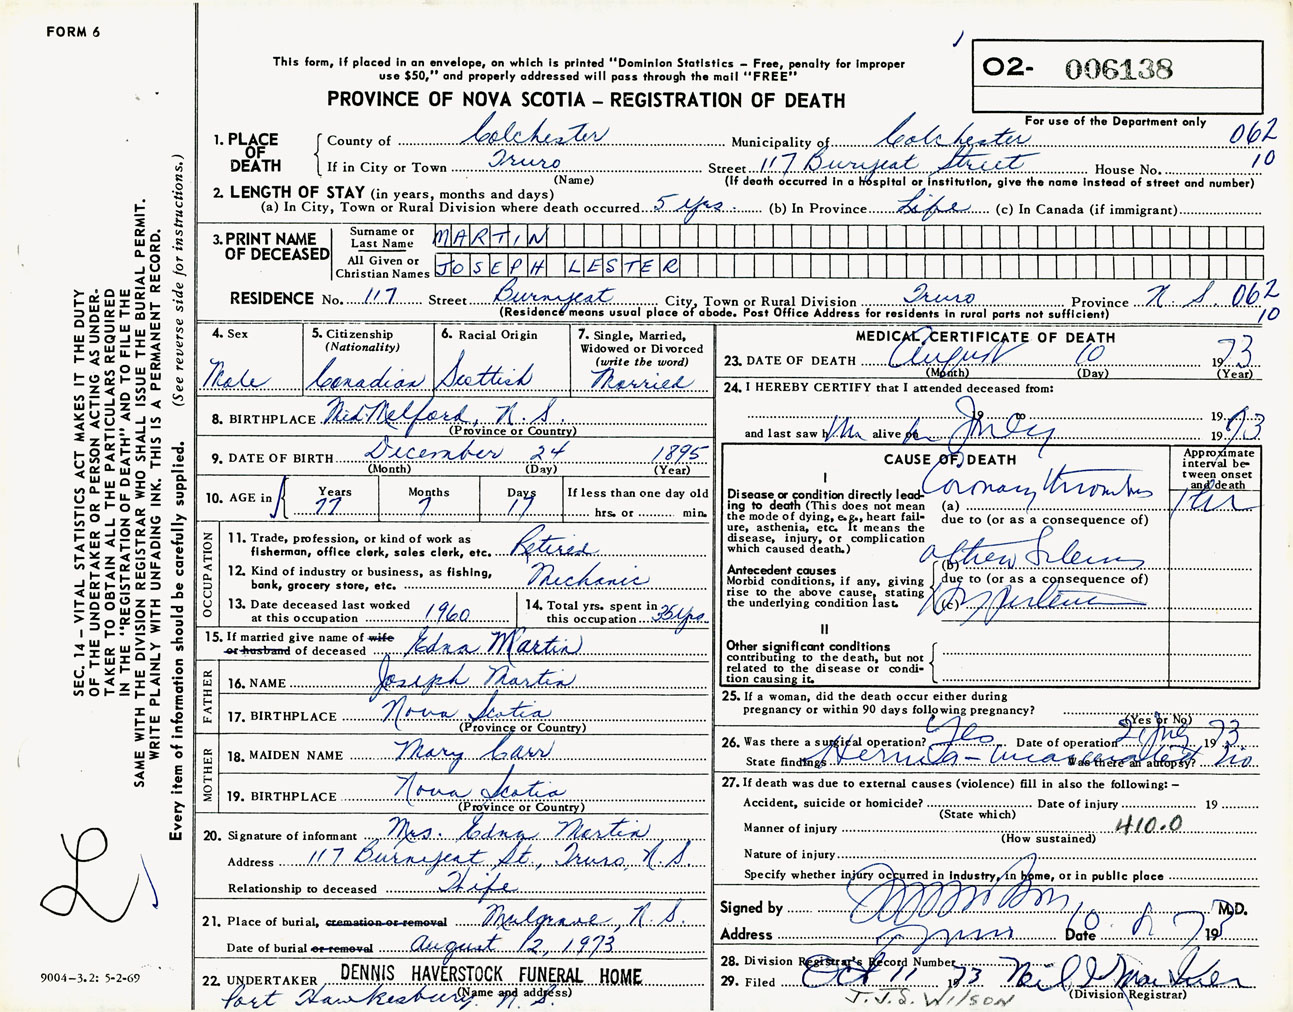 FORM 6
This form, if placed in an envelope, on which is printed "Dominion Statistics – Free, penalty for improper
use $50," and properly addressed will pass through the mail "FREE"
PROVINCE OF NOVA SCOTIA – REGISTRATION OF DEATH
02- 006138
For use of the Department only
062
10
1. PLACE OF DEATH
County of Colchester Municipality of Colchester
If in City or Town Truro Street 117 Burnyeat Street House No.
(Name) (If death occurred in a hospital or institution, give the name instead of street and number)
2. LENGTH OF STAY (in years, months and days)
(a) In City, Town or Rural Division where death occurred 5 yrs. (b) In Province Life (c) In Canada (if immigrant)
3. PRINT NAME OF DECEASED
Surname or Last Name MARTIN
All Given or Christian Names JOSEPH LESTER
RESIDENCE No. 117 Street Burnyeat City, Town or Rural Division Truro Province N.S. 062
(Residence means usual place of abode. Post Office Address for residents in rural parts not sufficient) 10
4. Sex
Male
5. Citizenship
(Nationality)
Canadian
6. Racial Origin
Scottish
7. Single, Married,
Widowed or Divorced
(write the word)
Married
8. BIRTHPLACE Mid. Melford, N.S.
(Province or Country)
9. DATE OF BIRTH December 24 1895
(Month) (Day) (Year)
10. AGE in Years 77 Months 7 Days 17 If less than one day old
hrs. or min.
OCCUPATION
11. Trade, profession, or kind of work as
fisherman, office clerk, sales clerk, etc. Retired
12. Kind of industry or business, as fishing,
bank, grocery store, etc. Mechanic
13. Date deceased last worked
at this occupation 1960
14. Total yrs. spent in
this occupation 35 yrs
15. If married give name of wife
or husband of deceased Edna Martin
FATHER
16. NAME Joseph Martin
17. BIRTHPLACE Nova Scotia
(Province or Country)
MOTHER
18. MAIDEN NAME Mary Carr
19. BIRTHPLACE Nova Scotia
(Province or Country)
20. Signature of informant Mrs. Edna Martin
Address 117 Burnyeat St., Truro, N.S.
Relationship to deceased Wife
21. Place of burial, cremation or removal Mulgrave, N.S.
Date of burial or removal August 12, 1973
22. UNDERTAKER DENNIS HAVERSTOCK FUNERAL HOME
(Name and address)
Port Hawkesbury, N.S.
MEDICAL CERTIFICATE OF DEATH
23. DATE OF DEATH August 10 1973
(Month) (Day) (Year)
24. I HEREBY CERTIFY that I attended deceased from:
19 to 19
and last saw him alive on July 1973
CAUSE OF DEATH
Approximate
interval be-
tween onset
and death
I
Disease or condition directly lead-
ing to death (This does not mean
the mode of dying, e.g., heart fail-
ure, asthenia, etc. It means the
disease, injury, or complication
which caused death.)
(a) Coronary thrombosis
due to (or as a consequence of)
Antecedent causes
Morbid conditions, if any, giving
rise to the above cause, stating
the underlying condition last.
(b)
due to (or as a consequence of)
(c)
II
Other significant conditions
contributing to the death, but not
related to the disease or condi-
tion causing it.
25. If a woman, did the death occur either during
pregnancy or within 90 days following pregnancy?
(Yes or No)
26. Was there a surgical operation? Yes Date of operation 1973
State findings Hernia Was there an autopsy? No
27. If death was due to external causes (violence) fill in also the following:–
Accident, suicide or homicide? Date of injury 19
(State which)
Manner of injury 410.0
(How sustained)
Nature of injury
Specify whether injury occurred in industry, in home, or in public place
Signed by M.D.
Address Truro Date 10 8 1973
28. Division Registrar's Record Number
29. Filed Oct 11 1973
(Division Registrar)
J.J.S. WILSON
SEC. 14 – VITAL STATISTICS ACT MAKES IT THE DUTY
OF THE UNDERTAKER OR PERSON ACTING AS UNDER-
TAKER TO OBTAIN ALL THE PARTICULARS REQUIRED
IN THE "REGISTRATION OF DEATH" AND TO FILE THE
SAME WITH THE DIVISION REGISTRAR WHO SHALL ISSUE THE BURIAL PERMIT.
WRITE PLAINLY WITH UNFADING INK. THIS IS A PERMANENT RECORD.
Every item of information should be carefully supplied. (See reverse side for instructions.)
9004-3.2: 5-2-69